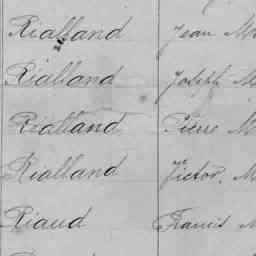 Rialland Jean M
Rialland Joseph M
Rialland Pierre M
Rialland Victor. M
Riaud Francis M